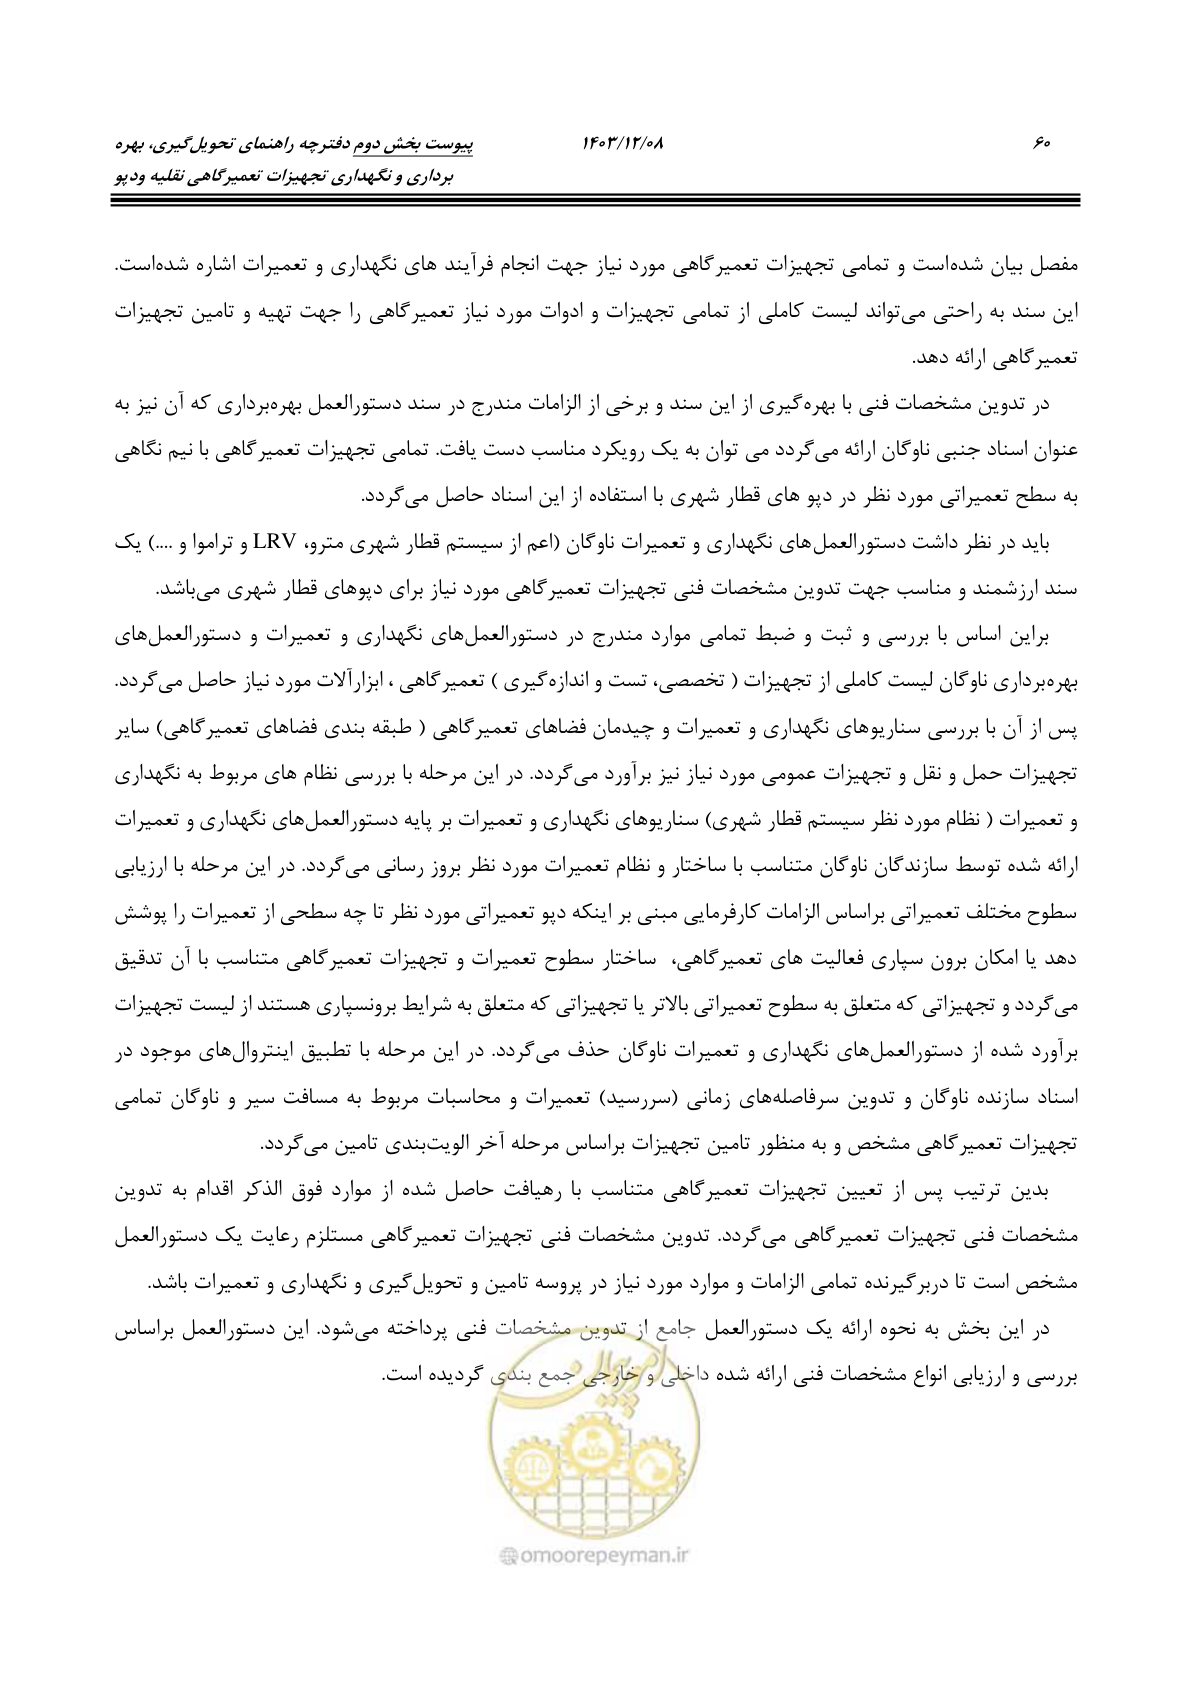 ۶۰ ۱۴۰۳/۱۲/۰۸ پیوست بخش دوم دفترچه راهنمای تحویل‌گیری، بهره
برداری و نگهداری تجهیزات تعمیرگاهی نقلیه ودپو
مفصل بیان شده‌است و تمامی تجهیزات تعمیرگاهی مورد نیاز جهت انجام فرآیند های نگهداری و تعمیرات اشاره شده‌است.
این سند به راحتی می‌تواند لیست کاملی از تمامی تجهیزات و ادوات مورد نیاز تعمیرگاهی را جهت تهیه و تامین تجهیزات
تعمیرگاهی ارائه دهد.
در تدوین مشخصات فنی با بهره‌گیری از این سند و برخی از الزامات مندرج در سند دستورالعمل بهره‌برداری که آن نیز به
عنوان اسناد جنبی ناوگان ارائه می‌گردد می توان به یک رویکرد مناسب دست یافت. تمامی تجهیزات تعمیرگاهی با نیم نگاهی
به سطح تعمیراتی مورد نظر در دپو های قطار شهری با استفاده از این اسناد حاصل می‌گردد.
باید در نظر داشت دستورالعمل‌های نگهداری و تعمیرات ناوگان (اعم از سیستم قطار شهری مترو، LRV و تراموا و ....) یک
سند ارزشمند و مناسب جهت تدوین مشخصات فنی تجهیزات تعمیرگاهی مورد نیاز برای دپوهای قطار شهری می‌باشد.
براین اساس با بررسی و ثبت و ضبط تمامی موارد مندرج در دستورالعمل‌های نگهداری و تعمیرات و دستورالعمل‌های
بهره‌برداری ناوگان لیست کاملی از تجهیزات ( تخصصی، تست و اندازه‌گیری ) تعمیرگاهی ، ابزارآلات مورد نیاز حاصل می‌گردد.
پس از آن با بررسی سناریوهای نگهداری و تعمیرات و چیدمان فضاهای تعمیرگاهی ( طبقه بندی فضاهای تعمیرگاهی) سایر
تجهیزات حمل و نقل و تجهیزات عمومی مورد نیاز نیز برآورد می‌گردد. در این مرحله با بررسی نظام های مربوط به نگهداری
و تعمیرات ( نظام مورد نظر سیستم قطار شهری) سناریوهای نگهداری و تعمیرات بر پایه دستورالعمل‌های نگهداری و تعمیرات
ارائه شده توسط سازندگان ناوگان متناسب با ساختار و نظام تعمیرات مورد نظر بروز رسانی می‌گردد. در این مرحله با ارزیابی
سطوح مختلف تعمیراتی براساس الزامات کارفرمایی مبنی بر اینکه دپو تعمیراتی مورد نظر تا چه سطحی از تعمیرات را پوشش
دهد یا امکان برون سپاری فعالیت های تعمیرگاهی، ساختار سطوح تعمیرات و تجهیزات تعمیرگاهی متناسب با آن تدقیق
می‌گردد و تجهیزاتی که متعلق به سطوح تعمیراتی بالاتر یا تجهیزاتی که متعلق به شرایط برونسپاری هستند از لیست تجهیزات
برآورد شده از دستورالعمل‌های نگهداری و تعمیرات ناوگان حذف می‌گردد. در این مرحله با تطبیق اینتروال‌های موجود در
اسناد سازنده ناوگان و تدوین سرفاصله‌های زمانی (سررسید) تعمیرات و محاسبات مربوط به مسافت سیر و ناوگان تمامی
تجهیزات تعمیرگاهی مشخص و به منظور تامین تجهیزات براساس مرحله آخر الویت‌بندی تامین می‌گردد.
بدین ترتیب پس از تعیین تجهیزات تعمیرگاهی متناسب با رهیافت حاصل شده از موارد فوق الذکر اقدام به تدوین
مشخصات فنی تجهیزات تعمیرگاهی می‌گردد. تدوین مشخصات فنی تجهیزات تعمیرگاهی مستلزم رعایت یک دستورالعمل
مشخص است تا دربرگیرنده تمامی الزامات و موارد مورد نیاز در پروسه تامین و تحویل‌گیری و نگهداری و تعمیرات باشد.
در این بخش به نحوه ارائه یک دستورالعمل جامع از تدوین مشخصات فنی پرداخته می‌شود. این دستورالعمل براساس
بررسی و ارزیابی انواع مشخصات فنی ارائه شده داخلی و خارجی جمع بندی گردیده است.
امور پیمان
@omoorepeyman.ir